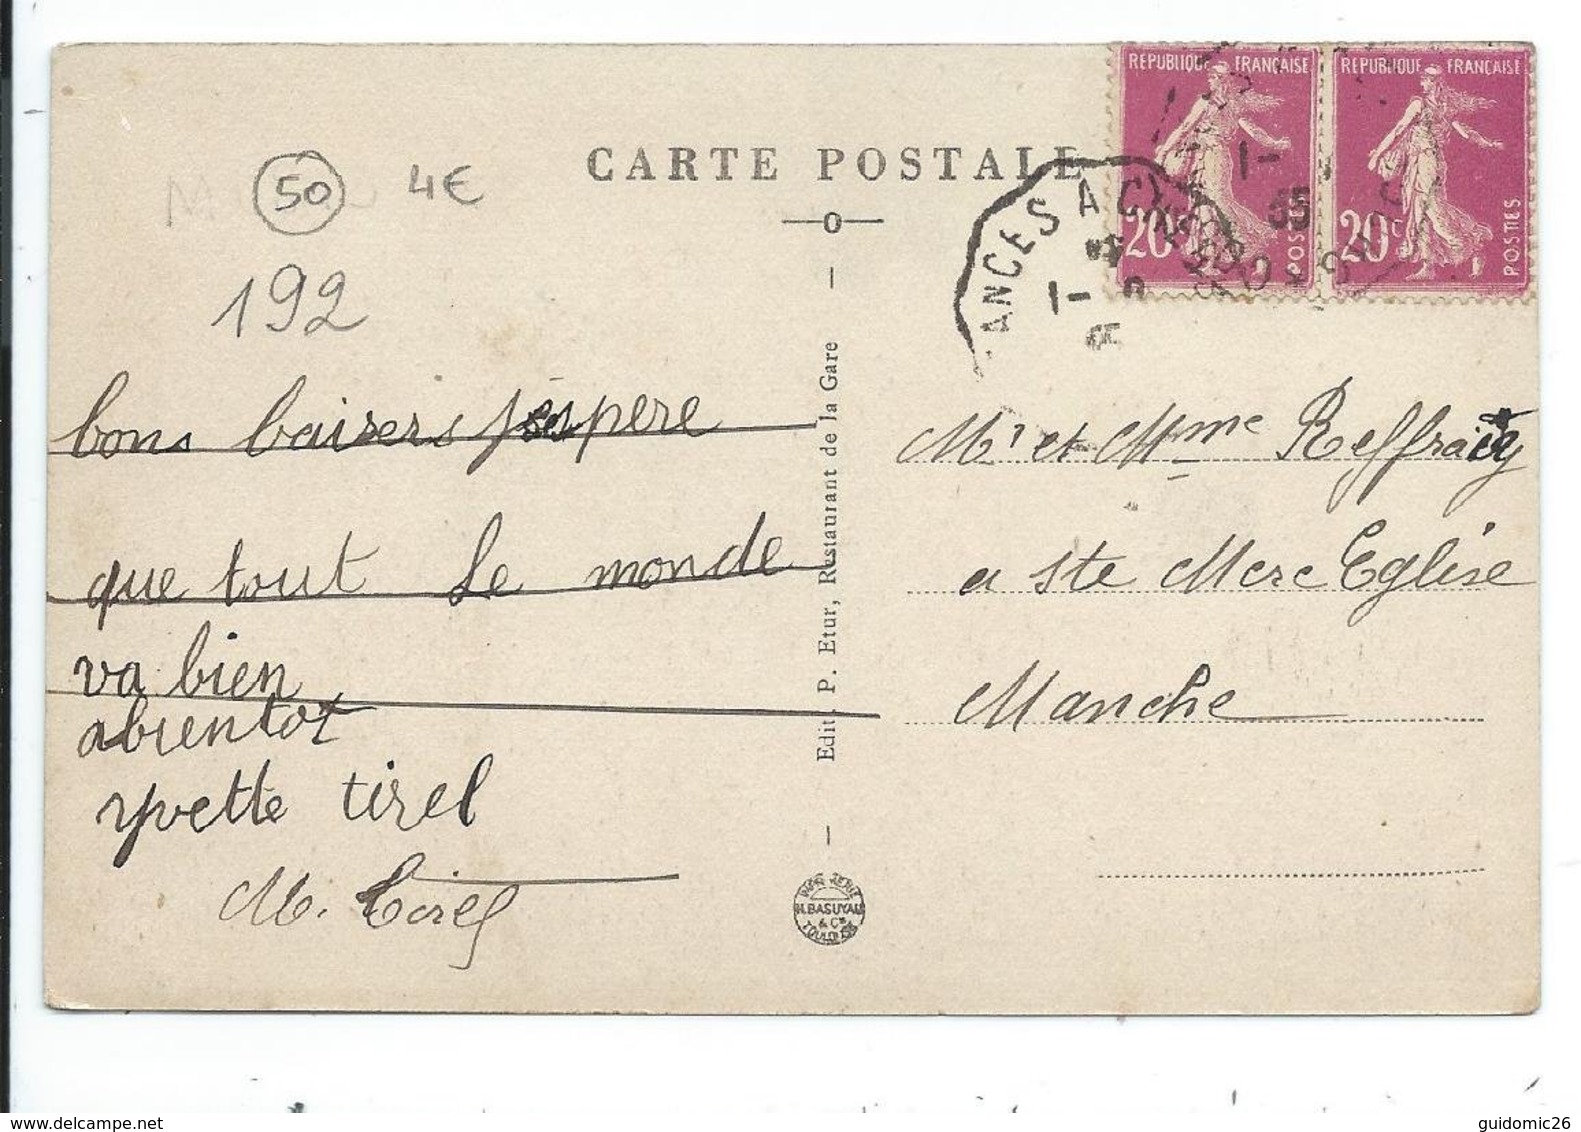 REPUBLIQUE FRANÇAISE
20c POSTES
REPUBLIQUE FRANÇAISE
20c POSTES
CARTE POSTALE
50 4€
192
ANCES A C
1-
35
bons baisers j'espere
que tout le monde
va bien
abientot
yvette tirel
M. Tirel
Edit. P. Etur, Restaurant de la Gare
IMPRIMERIE
H. BASUYAU
& Cie
TOULOUSE
Mr et Mme
a Ste Mere Eglise
Manche
guidomic26